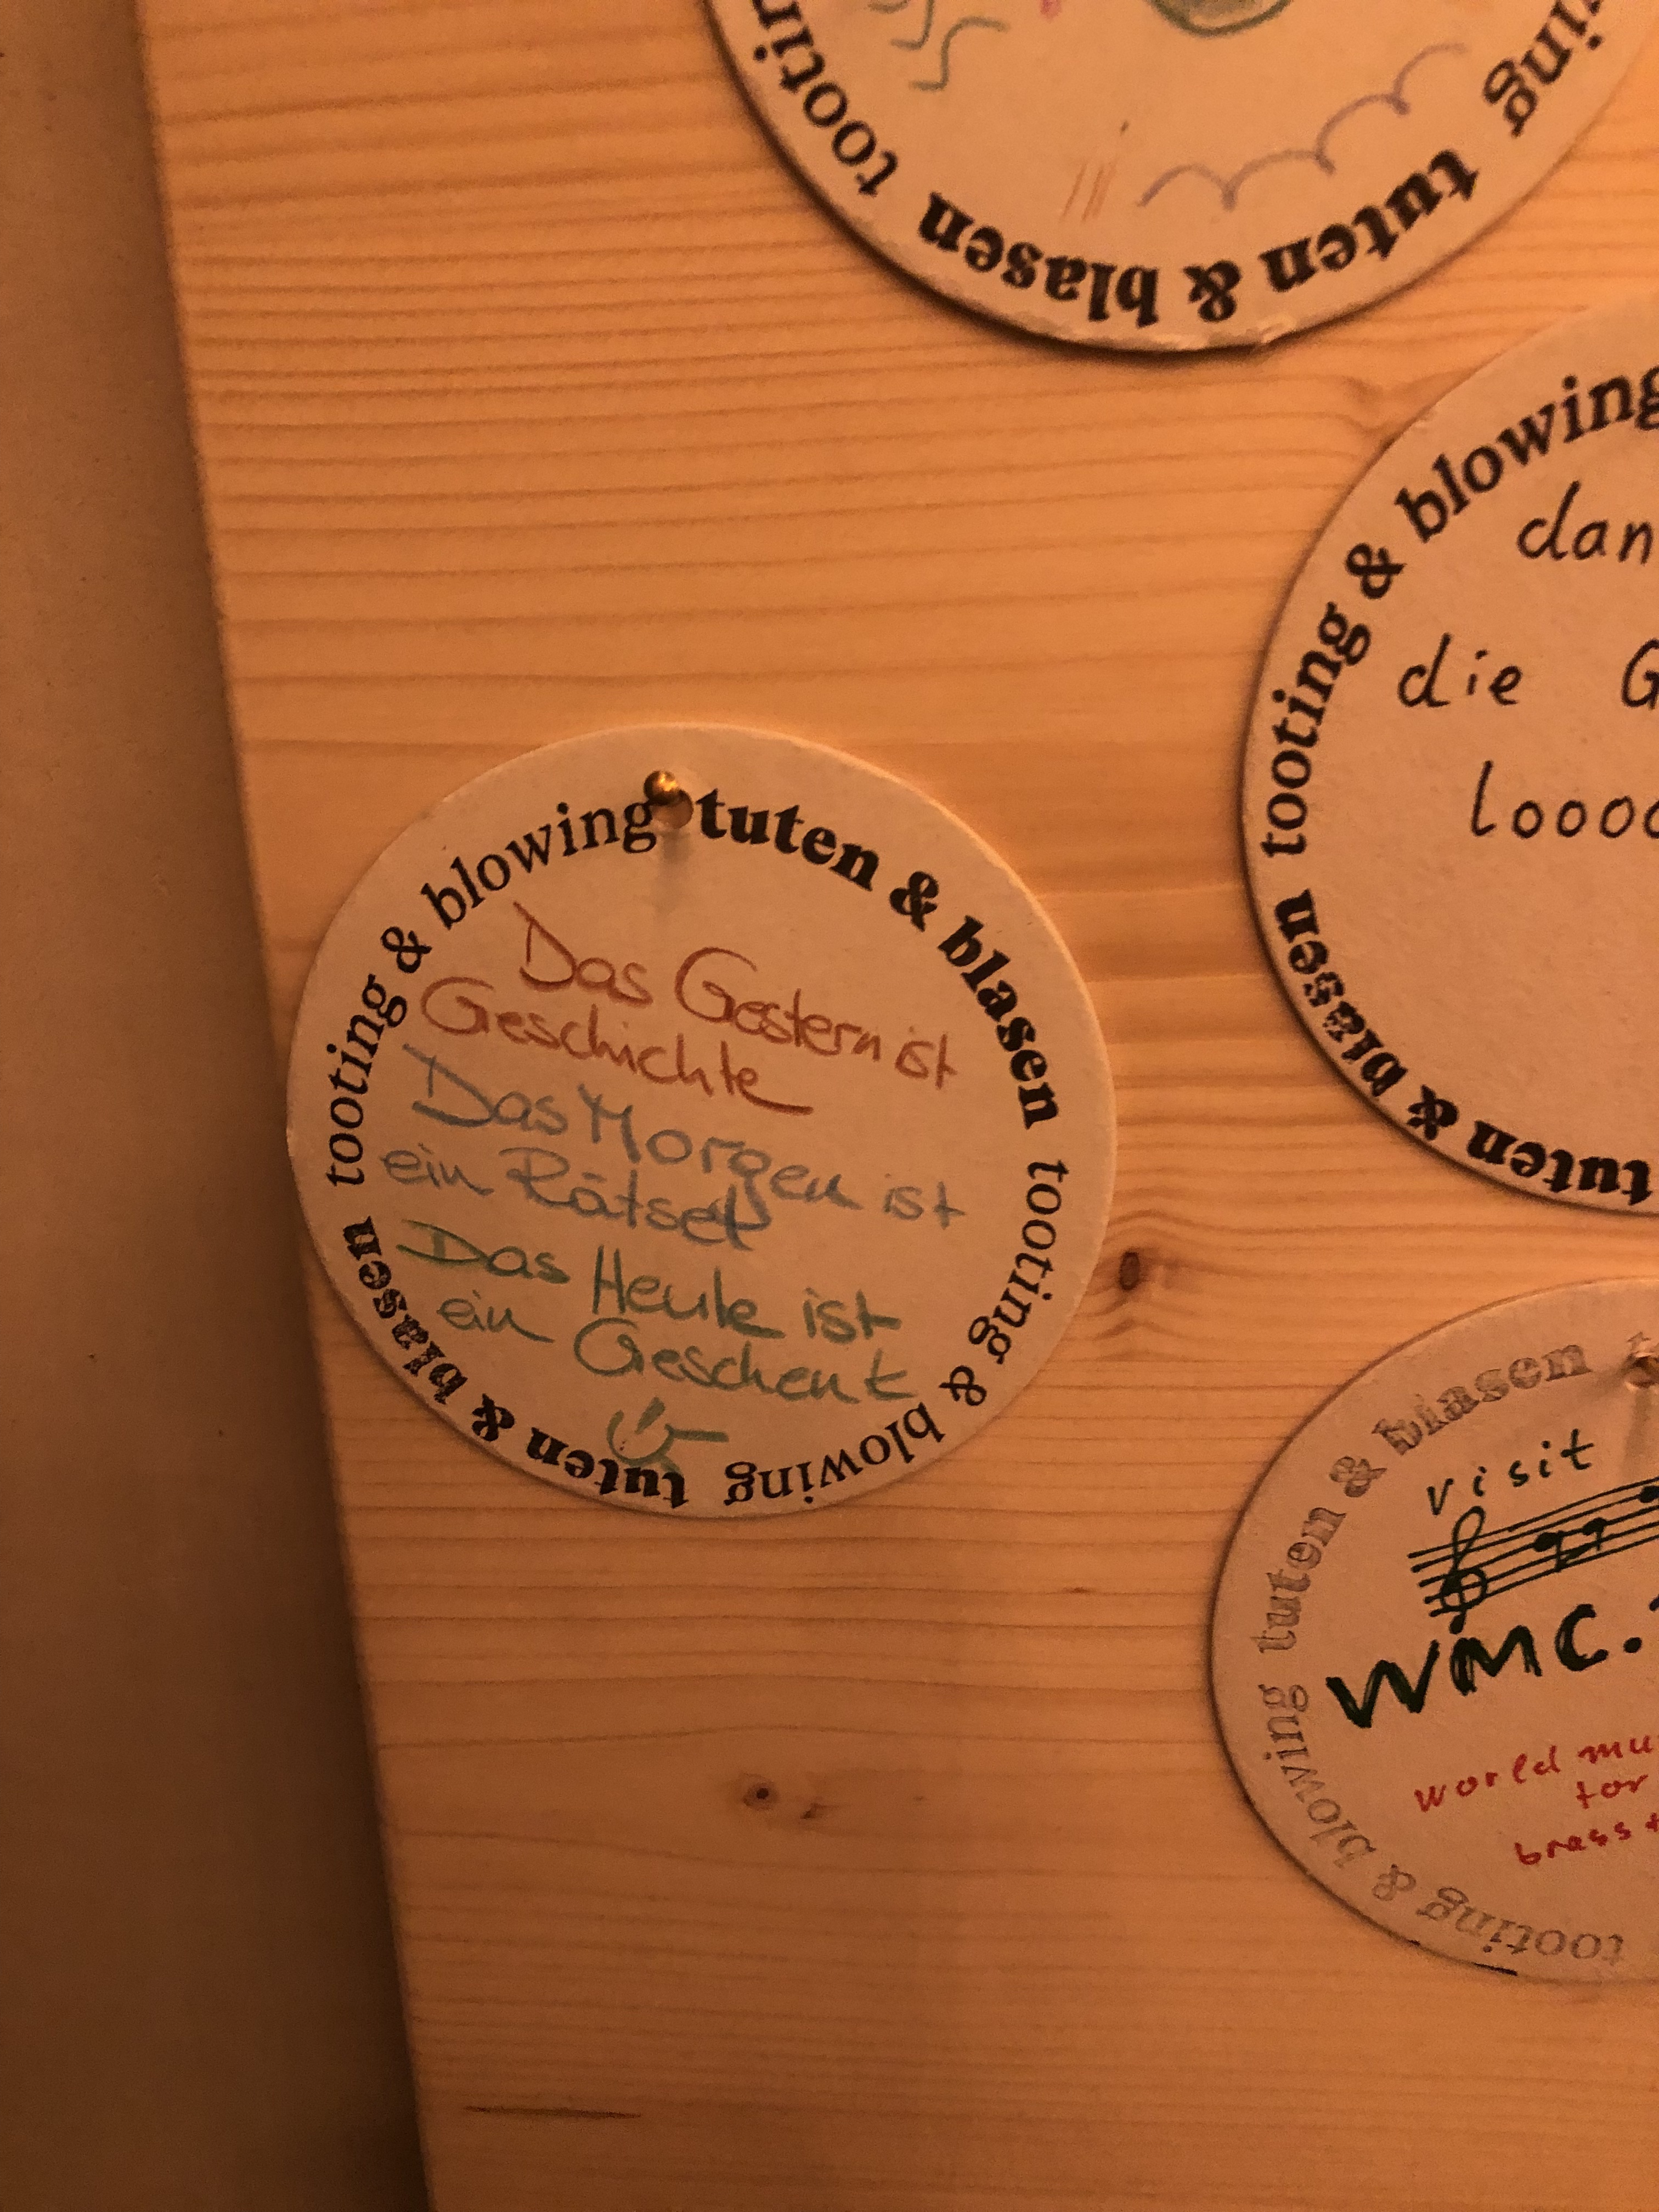 tooting
tuten & blasen
tooting & blowing
dan
die G
looo
tuten & blasen
tuten & blasen tooting & blowing tuten & blasen tooting & blowing
Das Gestern ist
Geschichte
Das Morgen ist
ein Rätsel
Das Heute ist
ein Geschenk
tuten & blasen
visit
WMC.
world mu
for
brass +
tooting & blowing